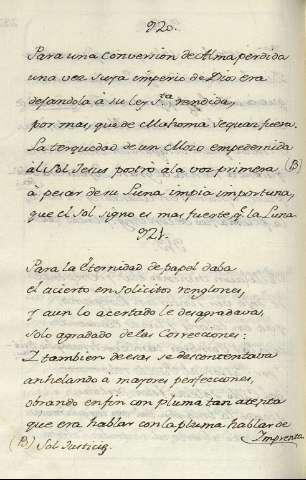 920.
Para una Conversion de Alma perdida
una voz suya imperio de Dios era
dejandola à su ley S.ta rendida,
por mas, que de Mahoma sequaz fuera.
La terquedad de un Moro empedernida
al Sol Jesus postrò à la voz primera (B)
à pesar de su Luna impia importuna,
que el Sol signo es mas fuerte q.e la Luna
921.
Para la Eternidad de papel daba
el acierto en solicitos renglones,
y aun lo acertado le desagradava,
solo agradado de las Correcciones:
I tambien de esas se descontentava
anhelando à mayores perfecciones,
obrando enfin con pluma tan atenta
que era hablar con la pluma hablar de
Imprenta
(B) Sol Justiciæ